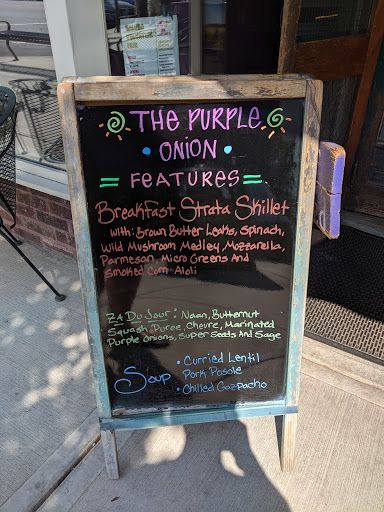 THE PURPLE
• ONION •
= FEATURES =
Breakfast Strata Skillet
With: Brown Butter Leaks, Spinach,
Wild Mushroom Medley, Mozzarella,
Parmeson, Micro Greens And
Smoked Corn Aioli
ZA Du Jour: Naan, Butternut
Squash Puree, Chevre, Marinated
Purple Onions, Super Seeds And Sage
Soup • Curried Lentil
Pork Posole
• Chilled Gazpacho